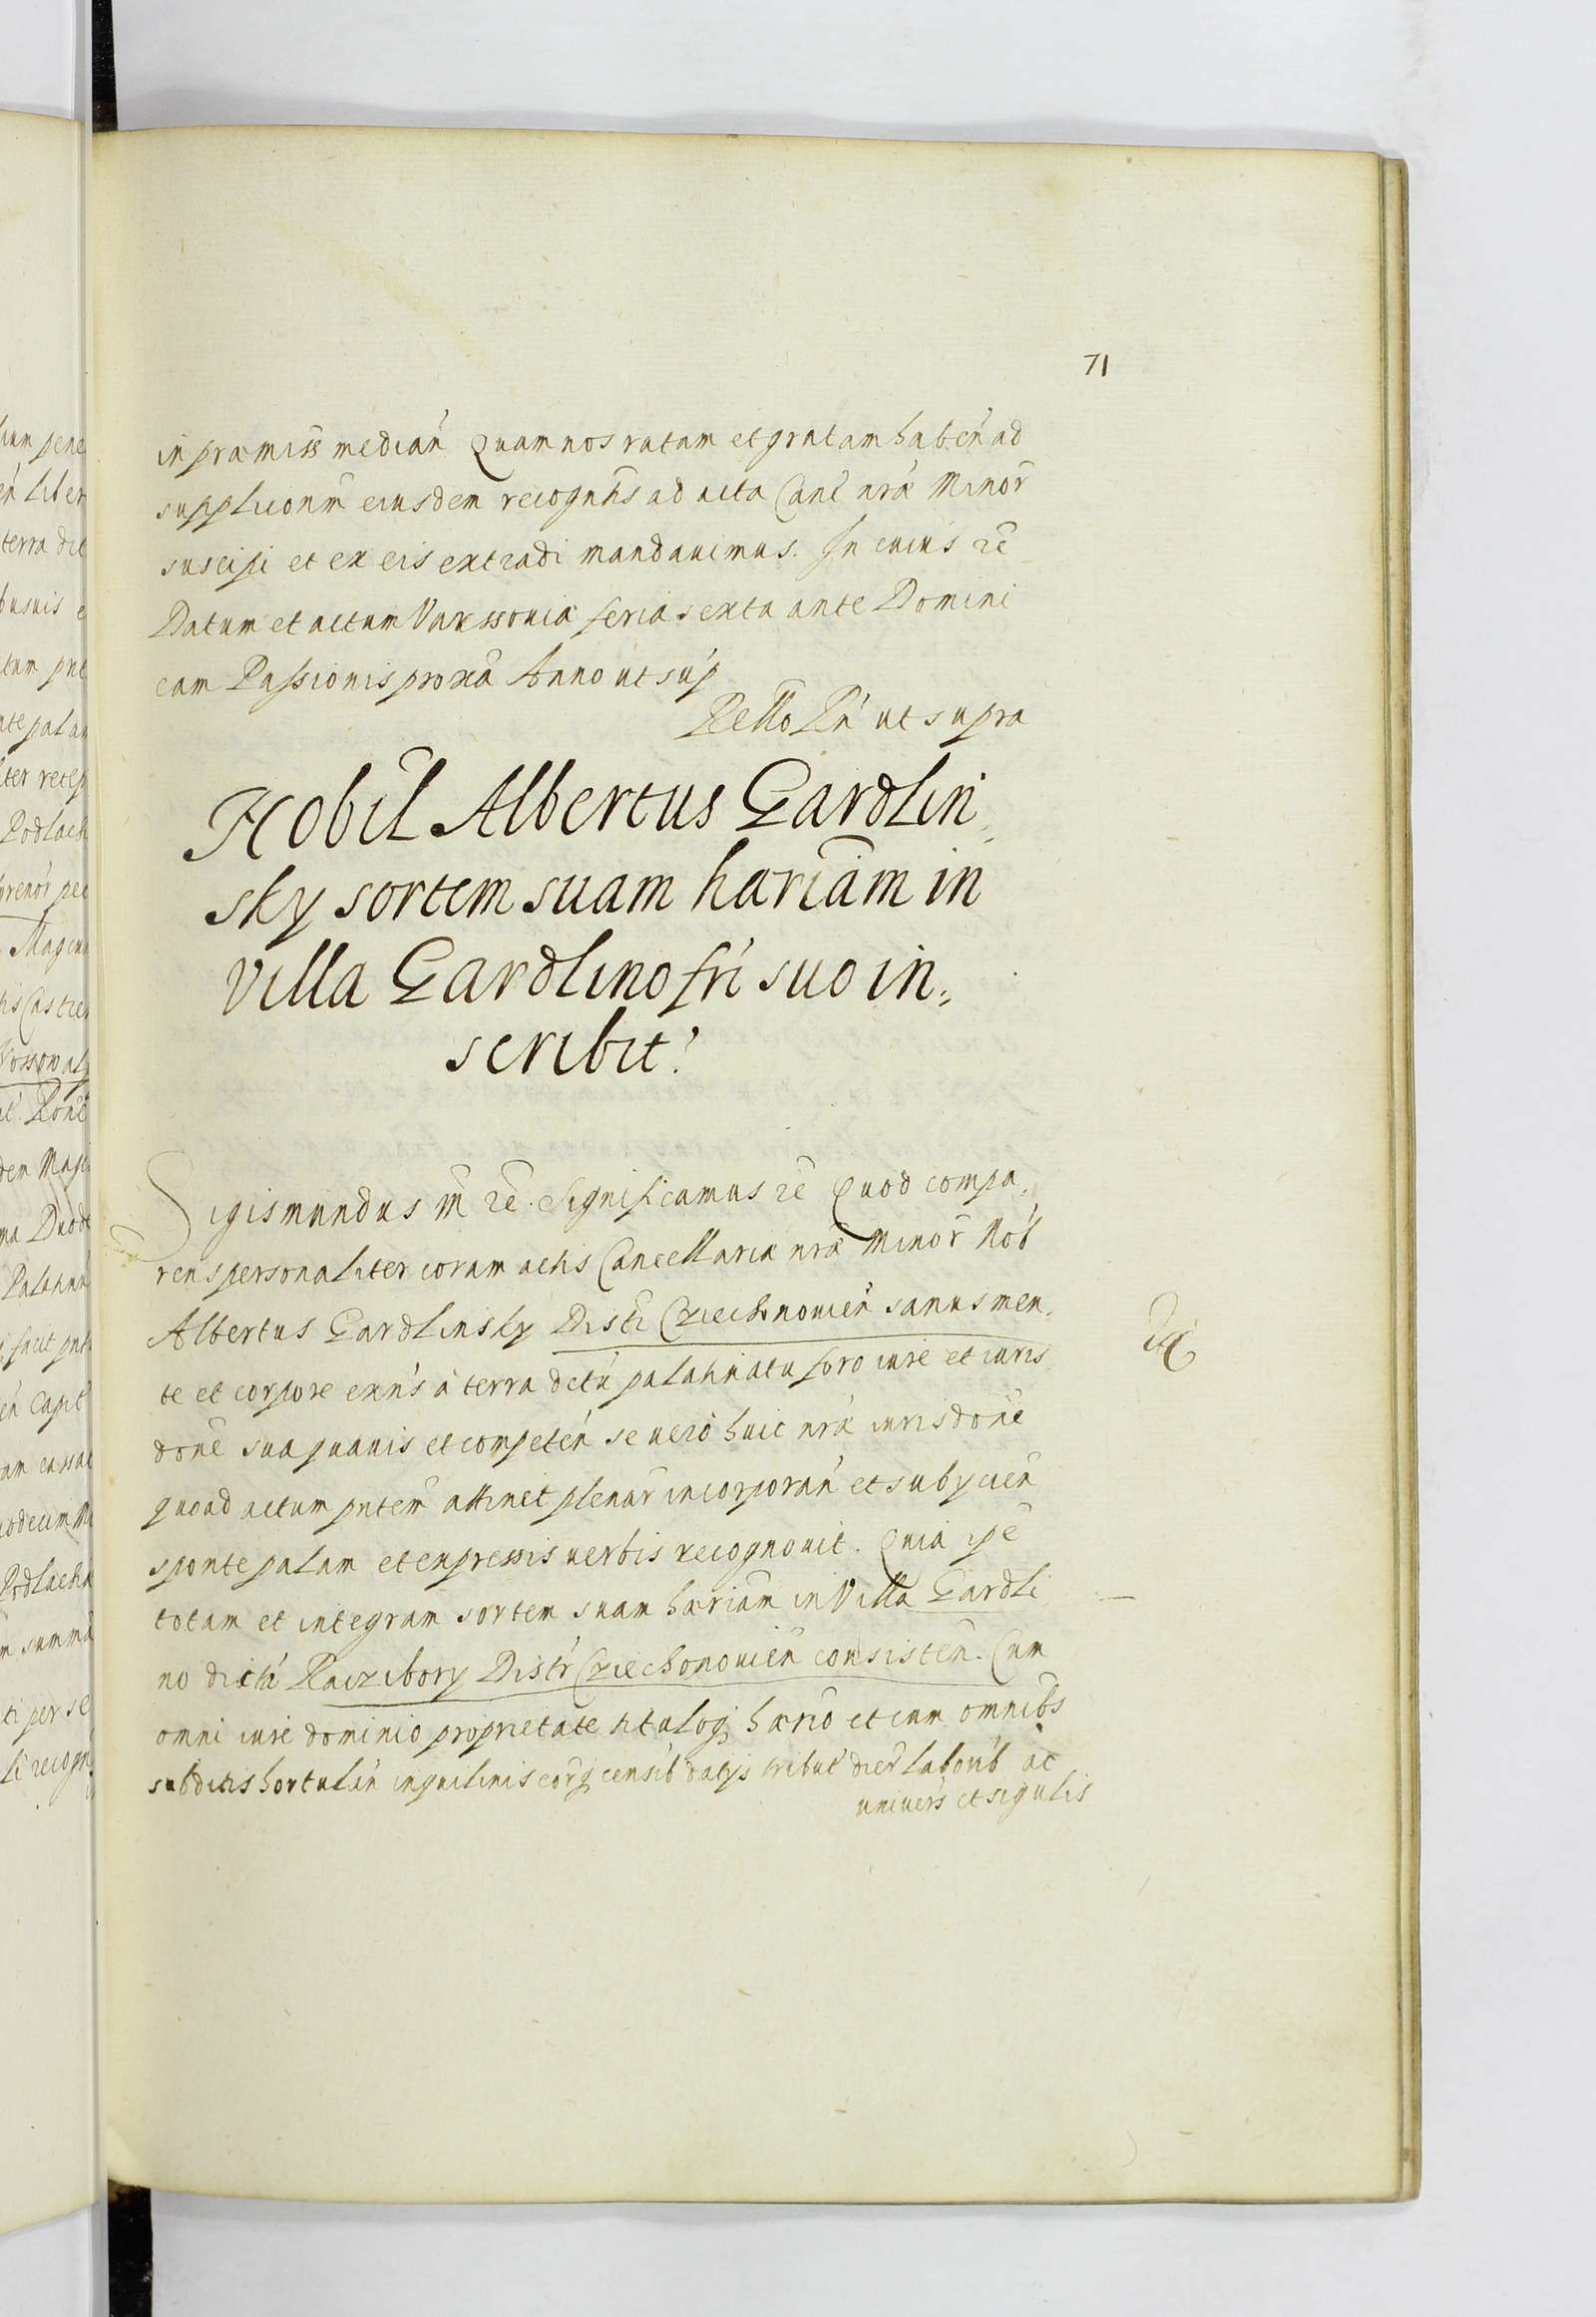 71
in præmiss median Quam nos ratam et gratam haben ad
supplicõnm eiusdem recogntis ad acta Canc nræ Minor
suscipi et ex eis extradi mandauimus. In cuius rē
Datum et actum Varssouiæ feria sexta ante Domini
cam Passionis proxã Anno ut sup
Rello Rn ut supra
Nobil Albertus Gardlin
sky sortem suam hæriam in
villa Gardlino fri suo in
scribit.
Sigismundus m̃ rē. Significamus rē Quod compa,
rens personaliter coram actis Cancellariæ nræ Minor Nob
Albertus Gardlinsky Distr Cziechonouien sanus men,
te et corpore exns à terra dctu palatinatu foro iure et iuris
done sua quauis et competen se uero huic nræ iurisdone
quoad actum pntem attinet plenar incorporan et subycien
sponte palam et expressis uerbis recognouit. Quia ipe
totam et integram sortem suam hæriam in Villa Gardli
no dicta Raczibory Distr Cziechonouien consisten. Cum
omni iure dominio proprietate tituloq hærio et cum omnibs
subditis hortulan inquilinis eorq censib datys tribut dier laborib ac
uniuers et sigulis